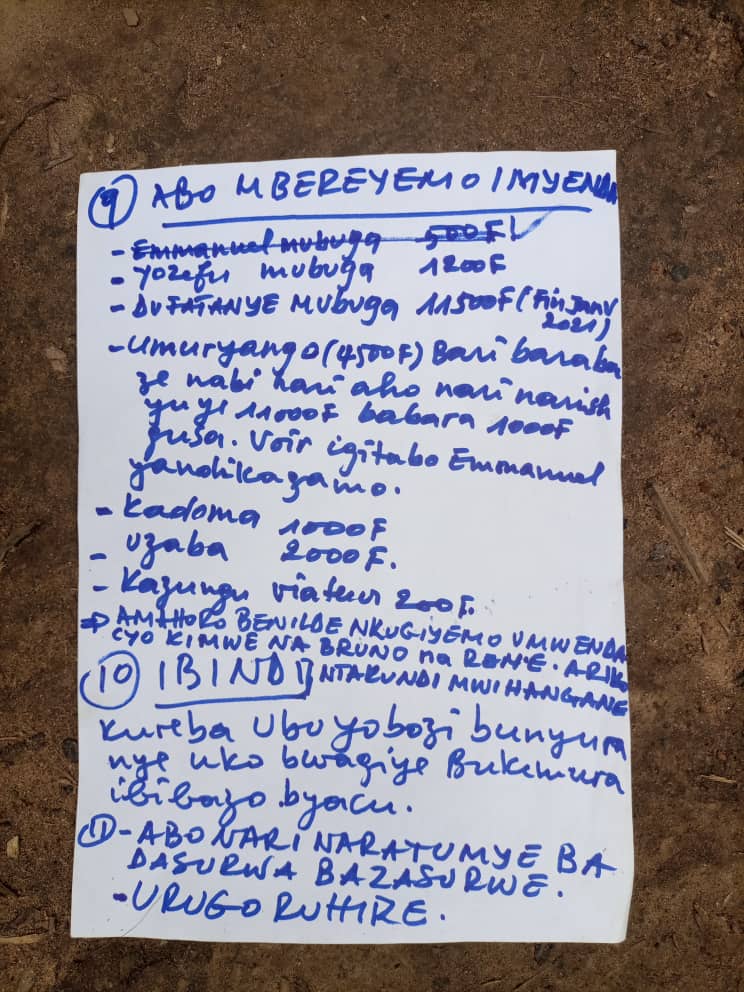 9 ABO MBEREYEMO IMYENDA
- Emmanuel mubuga 500F!
- Yozefu mubuga 1200F
- DUFATANYE MUbuga 11500F (Fin Janv
2021)
- Umuryango (4500F) Bari baraba
ze nabi hari aho nari narish
yuye 11000F babara 1000F
gusa. Voir igitabo Emmanuel
yandikagamo.
- Kadoma 1000F
- Uzaba 2000F.
- Kazungu viateur 200F.
⇒ AMAHORO BENILDE NKUGIYEMO UMWENDA
CYO KIMWE NA BRUNO na RENE. ARIKO
10 IBINDI NTAKUNDI MWIHANGANE
Kureba Ubuyobozi bunyura
nye uko bwagiye Bukemura
ibibazo byacu.
11 - ABO NARI NARATUMYE BA
DASURWA BAZASURWE.
- URUGO RUHIRE.